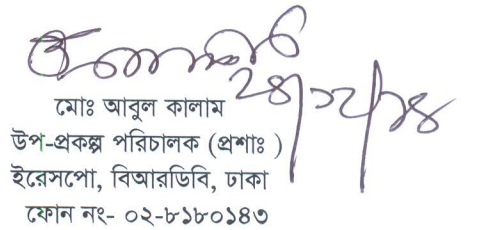 ২৪/১২/১৪
মোঃ আবুল কালাম
উপ-প্রকল্প পরিচালক (প্রশাঃ )
ইরেসপো, বিআরডিবি, ঢাকা
ফোন নং- ০২-৮১৮০১৪৩